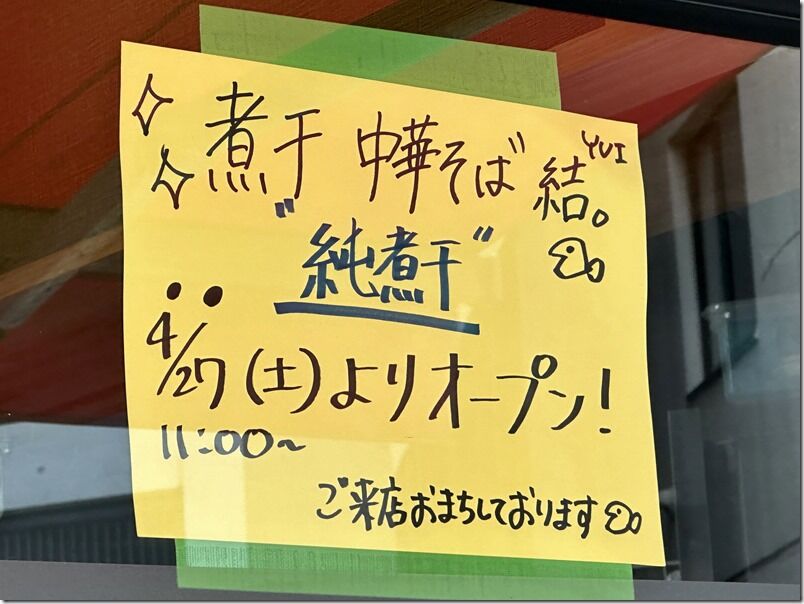 煮干 中華そば 結。
YUI
"純煮干"
4/27(土)よりオープン!
11:00~
ご来店おまちしております